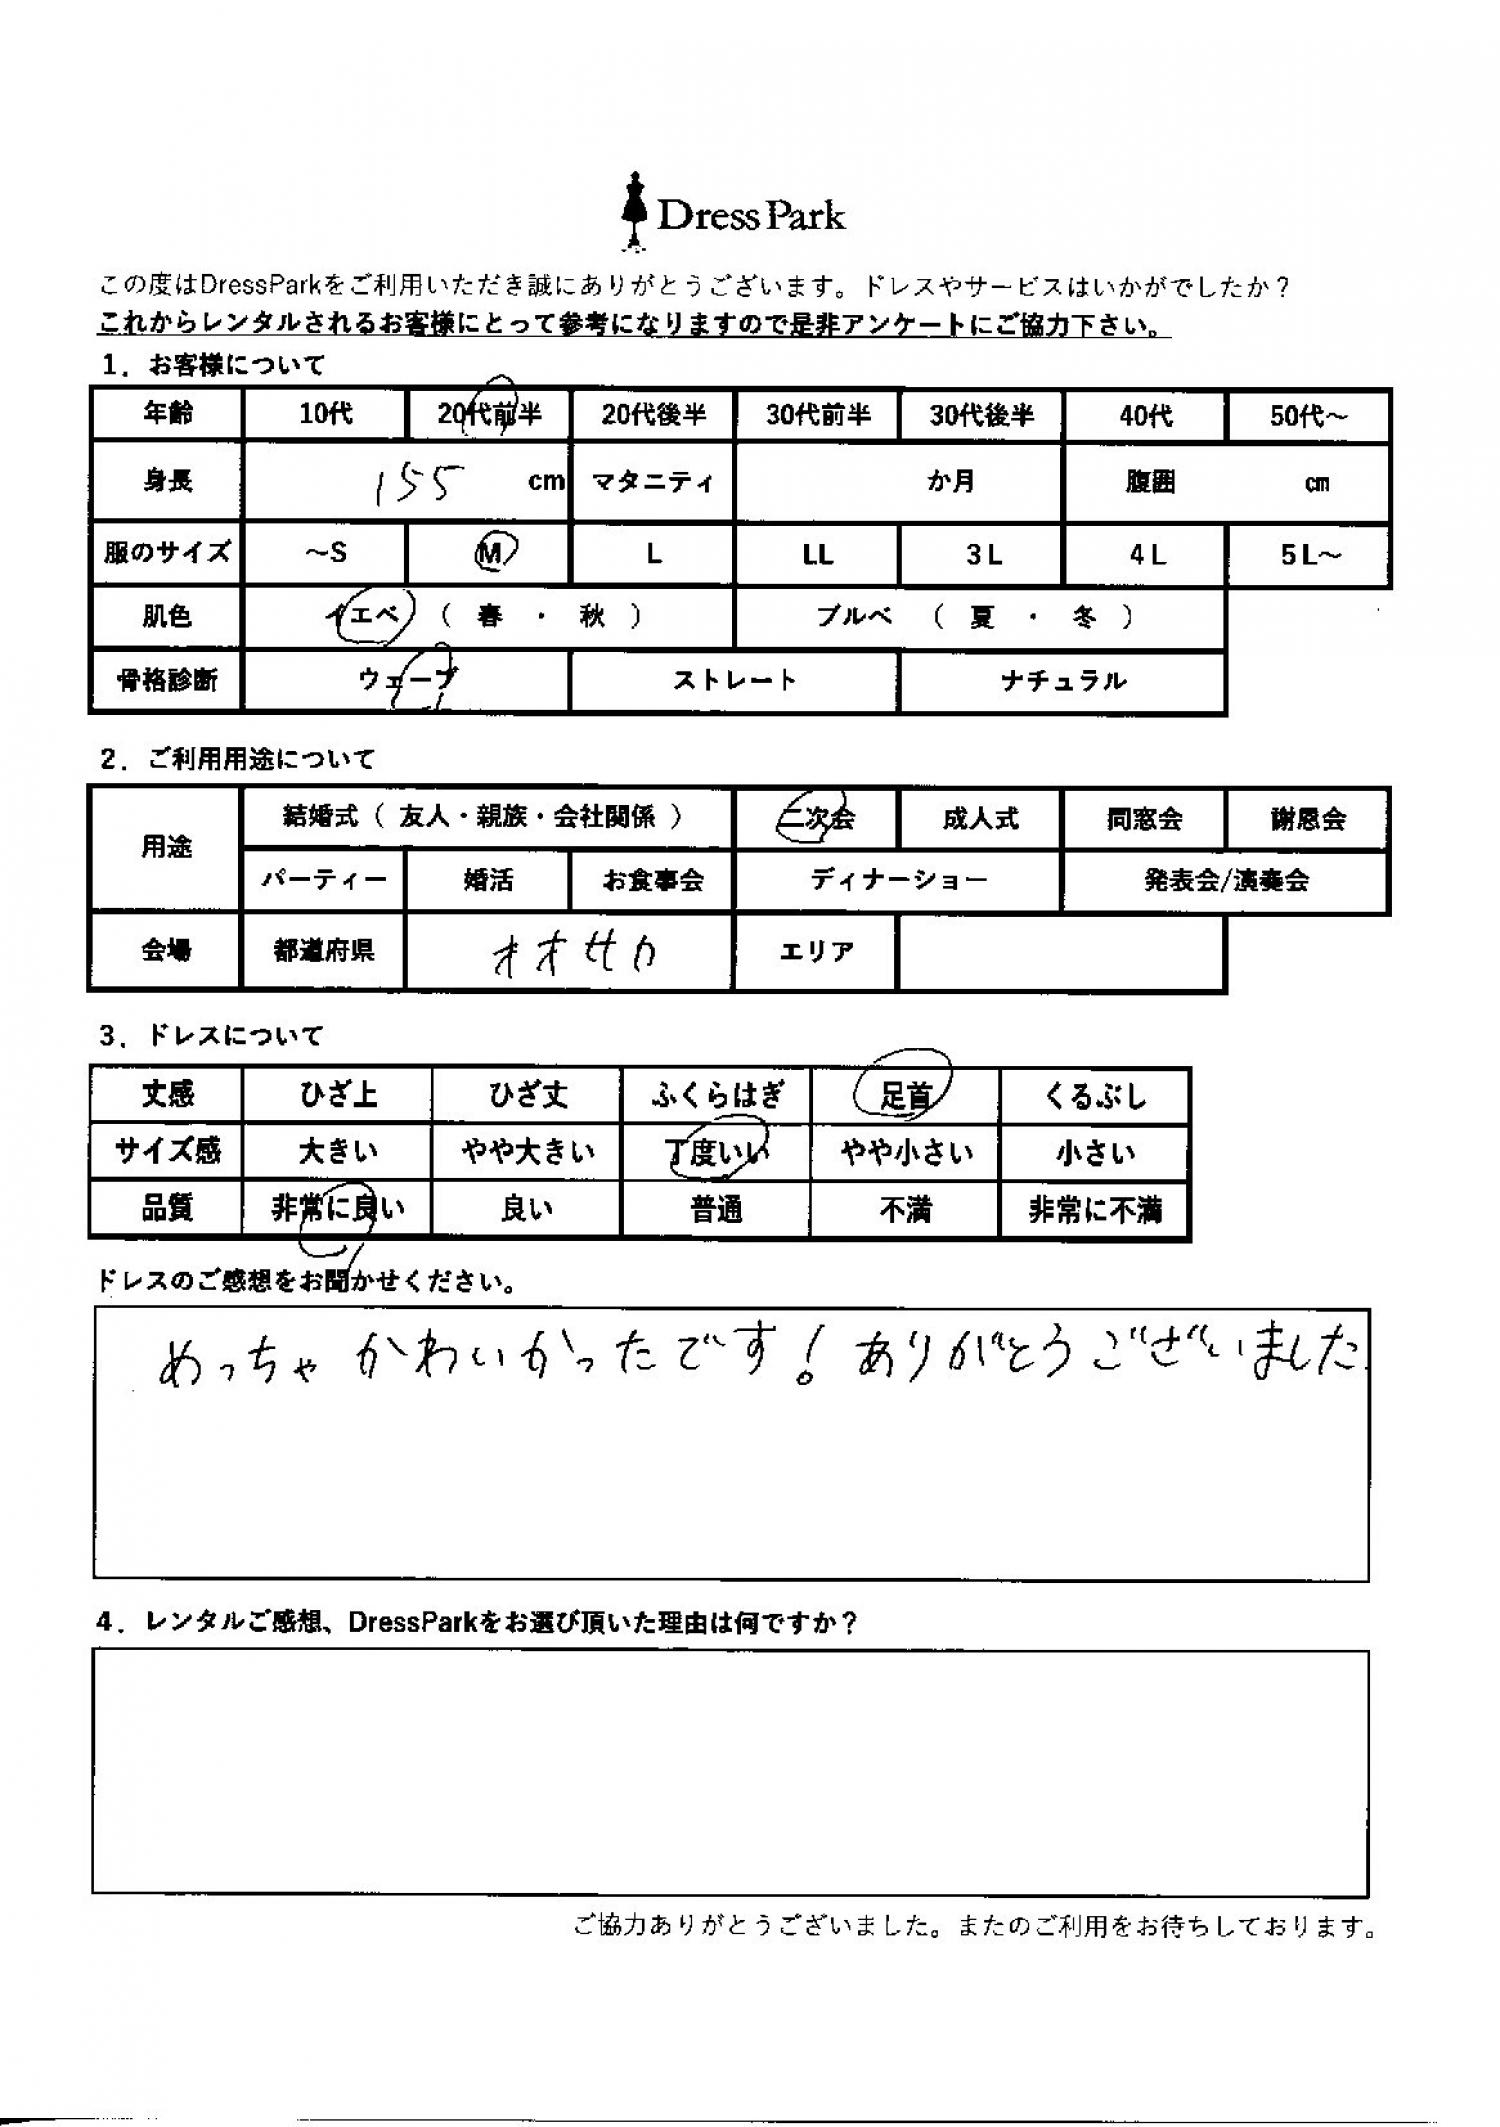 Dress Park
この度はDressParkをご利用いただき誠にありがとうございます。ドレスやサービスはいかがでしたか？
これからレンタルされるお客様にとって参考になりますので是非アンケートにご協力下さい。
1．お客様について
年齢 10代 20代前半 20代後半 30代前半 30代後半 40代 50代～
身長 155 cm マタニティ か月 腹囲 ㎝
服のサイズ ～S M L LL 3L 4L 5L～
肌色 イエベ（ 春 ・ 秋 ） ブルベ （ 夏 ・ 冬 ）
骨格診断 ウェーブ ストレート ナチュラル
2．ご利用用途について
用途 結婚式（ 友人・親族・会社関係 ） 二次会 成人式 同窓会 謝恩会
パーティー 婚活 お食事会 ディナーショー 発表会/演奏会
会場 都道府県 オオサカ エリア
3．ドレスについて
丈感 ひざ上 ひざ丈 ふくらはぎ 足首 くるぶし
サイズ感 大きい やや大きい 丁度いい やや小さい 小さい
品質 非常に良い 良い 普通 不満 非常に不満
ドレスのご感想をお聞かせください。
めっちゃかわいかったです！ありがとうございました.
4．レンタルご感想、DressParkをお選び頂いた理由は何ですか？
ご協力ありがとうございました。またのご利用をお待ちしております。